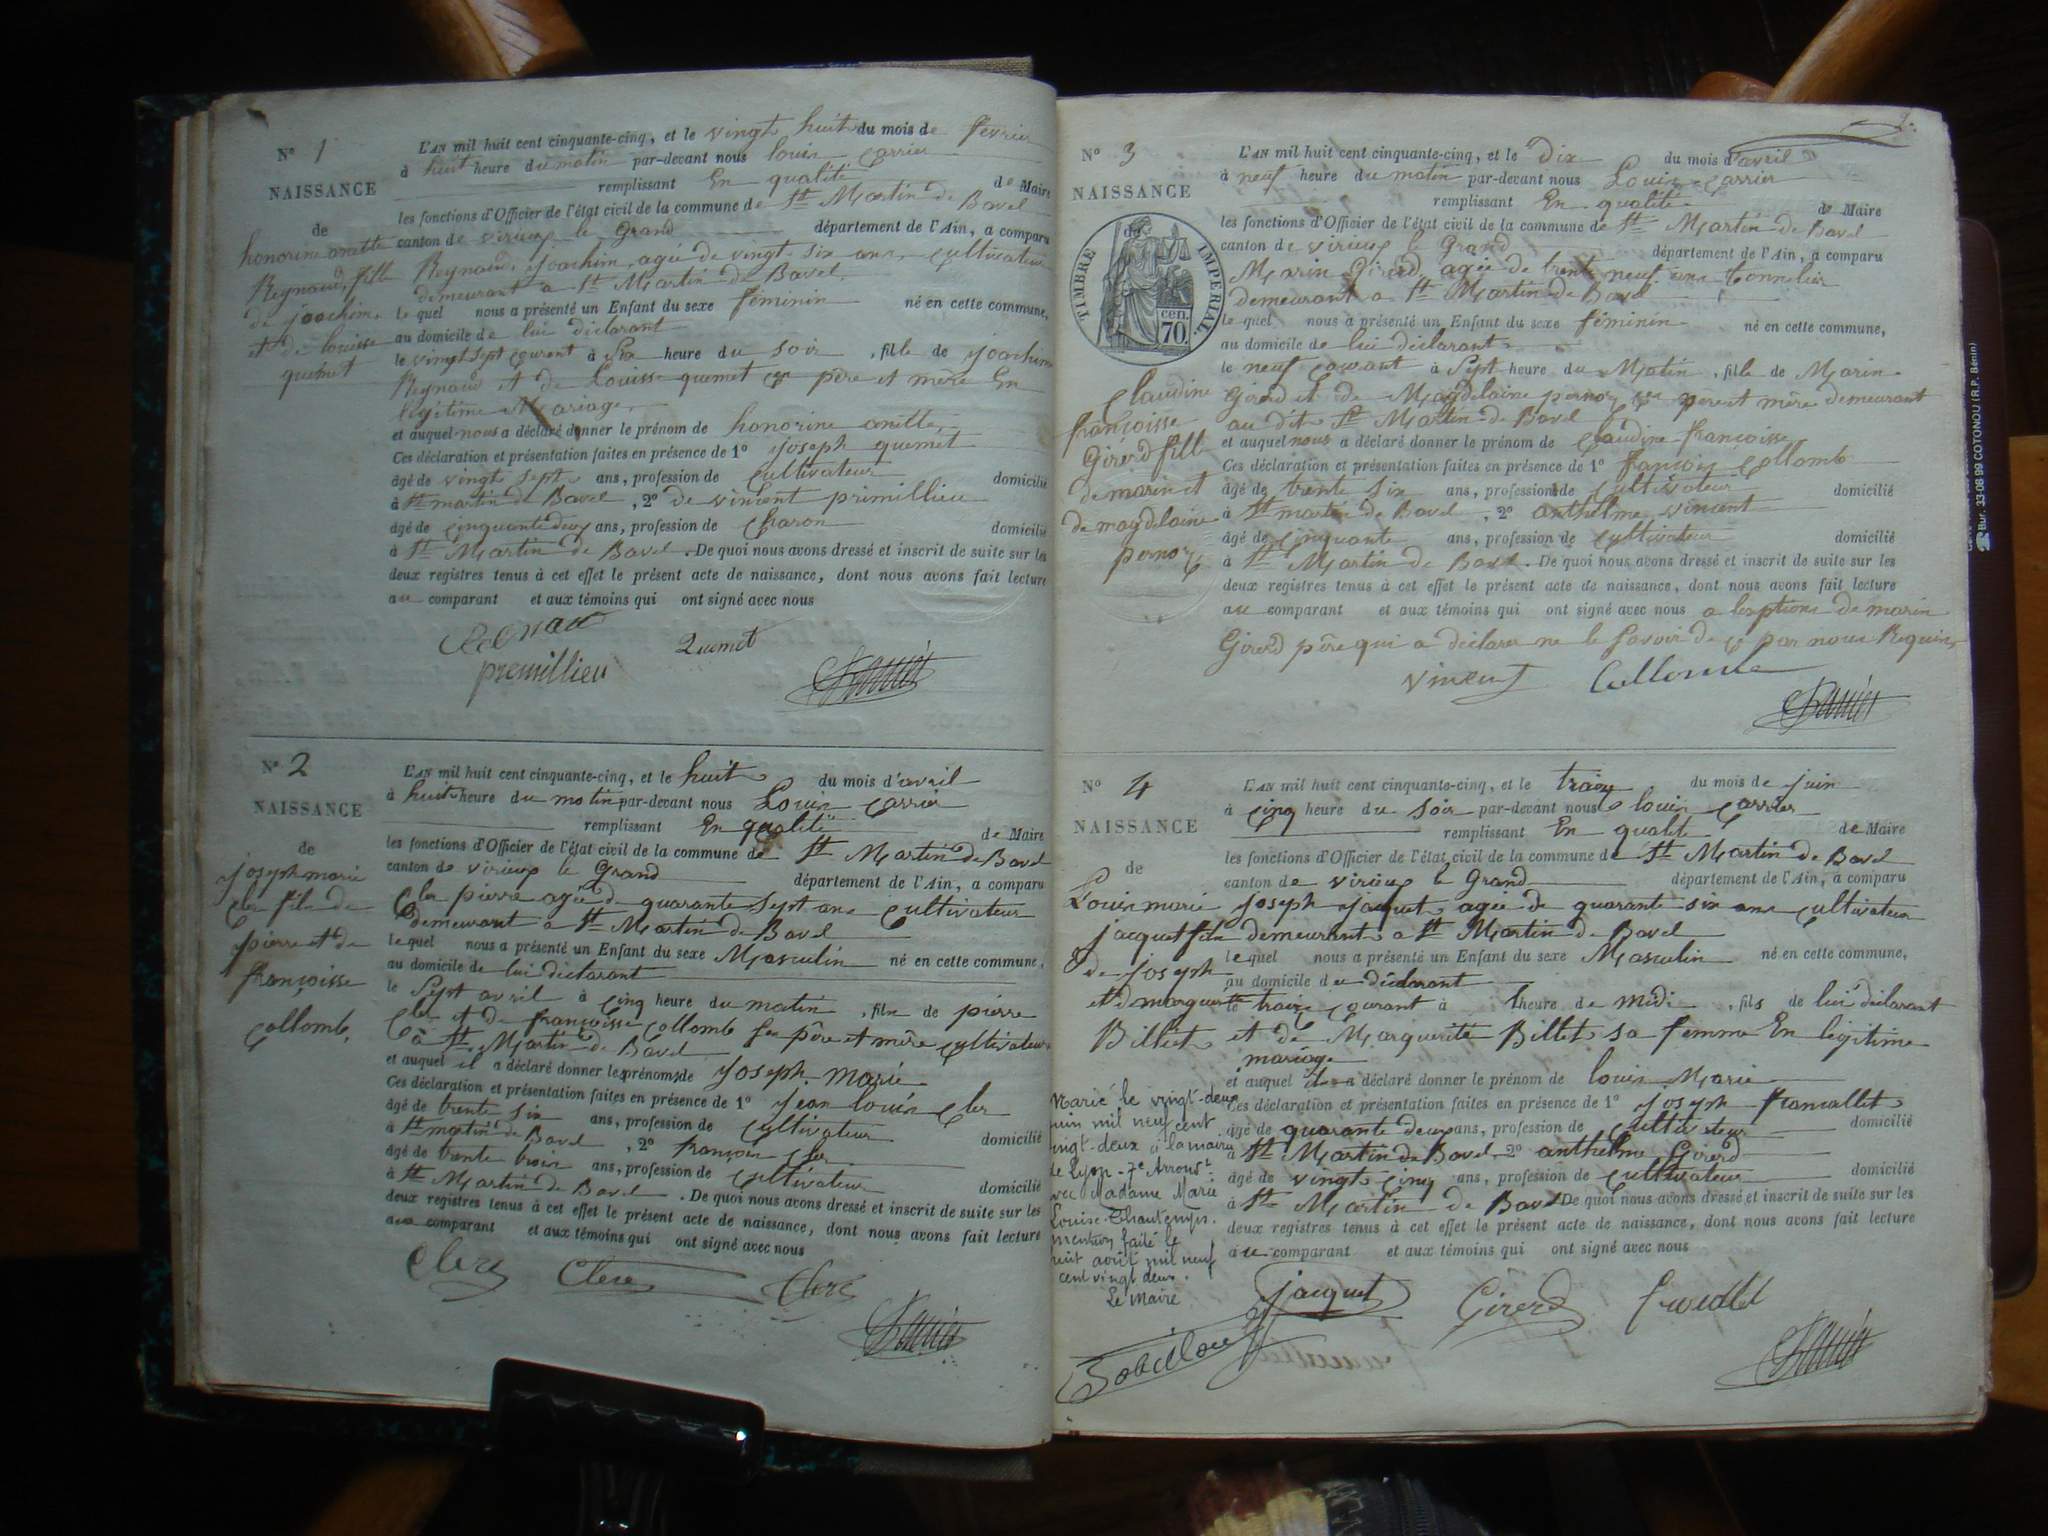 N° 1
NAISSANCE
de
honorine anette
Reynaud, fille
de joachim
et de louisse
quemet
L'AN mil huit cent cinquante-cinq, et le vingt huit du mois de fevrier
à huit heure du matin par-devant nous louis Carrier
remplissant En qualité de Maire
les fonctions d'Officier de l'état civil de la commune de St Martin de Bavel
canton de virieux le grand département de l'Ain, a comparu
Reynaud, joachim, agée de vingt six ans, cultivateur
demeurant a St Martin de Bavel
le quel nous a présenté un Enfant du sexe féminin né en cette commune,
au domicile de lui déclarant
le vingt sept courant à Six heure du soir, fille de joachim
Reynaud et de Louisse quemet père et mère En
légitime Mariage
et auquel nous a déclaré donner le prénom de honorine anette
Ces déclaration et présentation faites en présence de 1° joseph quemet
âgé de vingt sept ans, profession de cultivateur domicilié
à St martin de Bavel, 2° de vincent primillieu
âgé de cinquante deux ans, profession de charon domicilié
à St Martin de Bavel. De quoi nous avons dressé et inscrit de suite sur les
deux registres tenus à cet effet le présent acte de naissance, dont nous avons fait lecture
au comparant et aux témoins qui ont signé avec nous
Quemet
premillieu
Carrier
N° 2
NAISSANCE
de
joseph marie
cler fils de
pierre et de
françoisse
Collomb
L'AN mil huit cent cinquante-cinq, et le huit du mois d'avril
à huit heure du matin par-devant nous Louis Carrier
remplissant En qualité de Maire
les fonctions d'Officier de l'état civil de la commune de St Martin de Bavel
canton de virieux le Grand département de l'Ain, a comparu
Cler pierre agé d quarante sept ans Cultivateur
demeurant a St Martin de Bavel
le quel nous a présenté un Enfant du sexe Masculin né en cette commune,
au domicile de lui déclarant
le Sept avril à cinq heure du matin, fils de pierre
Cler et de françoisse Collomb père et mère cultivateurs
à St Martin de Bavel
et auquel il a déclaré donner les prénoms de joseph marie
Ces déclaration et présentation faites en présence de 1° jean louis cler
âgé de trente six ans, profession de cultivateur domicilié
à St martin de Bavel, 2° françois cler
âgé de trente trois ans, profession de cultivateur domicilié
à St Martin de Bavel. De quoi nous avons dressé et inscrit de suite sur les
deux registres tenus à cet effet le présent acte de naissance, dont nous avons fait lecture
au comparant et aux témoins qui ont signé avec nous
Clerc Clerc Clerc
Carrier
N° 3
NAISSANCE
de
TIMBRE IMPÉRIAL.
cen.
70.
Claudine
françoisse
Girerd fille
de marin et
de magdelaine
pernoz
L'AN mil huit cent cinquante-cinq, et le Dix du mois d'avril
à neuf heure du matin par-devant nous Louis Carrier
remplissant En qualité de Maire
les fonctions d'Officier de l'état civil de la commune de St Martin de Bavel
canton de virieux le Grand département de l'Ain, a comparu
Marin Girerd agée de trente neuf ans tonnelier
demeurant a St Martin de Bavel
le quel nous a présenté un Enfant du sexe féminin né en cette commune,
au domicile de lui déclarant
le neuf courant à Sept heure du Matin, fille de Marin
Girerd et de Magdelaine pernoz père et mère demeurant
au dit St Martin de Bavel
et auquel nous a déclaré donner le prénom de Claudine françoisse
Ces déclaration et présentation faites en présence de 1° françois Collomb
âgé de trente six ans, profession de cultivateur domicilié
à St martin de Bavel, 2° anthelme vincent
âgé de cinquante ans, profession de cultivateur domicilié
à St Martin de Bavel. De quoi nous avons dressé et inscrit de suite sur les
deux registres tenus à cet effet le présent acte de naissance, dont nous avons fait lecture
au comparant et aux témoins qui ont signé avec nous a l'exption de marin
Girerd père qui a déclaré ne le savoir de ce par nous Requis
vincent Collomb
Carrier
N° 4
NAISSANCE
de
Louis marie
jacquet fils
de joseph
et d marguerite
Billiet
L'AN mil huit cent cinquante-cinq, et le traize du mois de juin
à cinq heure du soir par-devant nous louis Carrier
remplissant En qualité de Maire
les fonctions d'Officier de l'état civil de la commune de St Martin de Bavel
canton de virieux le Grand département de l'Ain, a comparu
joseph jacquet agée de quarante six ans cultivateur
demeurant a St Martin de Bavel
le quel nous a présenté un Enfant du sexe Masculin né en cette commune,
au domicile du déclarant
le traize courant à l'heure de midi, fils de lui déclarant
et de Marguerite Billet sa femme En légitime
mariage
et auquel il a déclaré donner le prénom de louis Marie
Ces déclaration et présentation faites en présence de 1° joseph francallet
âgé de quarante deux ans, profession de cultivateur domicilié
à St Martin de Bavel 2° anthelme Girerd
âgé de vingt cinq ans, profession de cultivateur domicilié
à St Martin de Bavel De quoi nous avons dressé et inscrit de suite sur les
deux registres tenus à cet effet le présent acte de naissance, dont nous avons fait lecture
au comparant et aux témoins qui ont signé avec nous
Marié le vingt-deux
juin mil neuf cent
vingt-deux à la mairie
de Lyon - 7e Arronst
avec Madame Marie
Louise Chantemps.
mention faite le
huit août mil neuf
cent vingt deux.
Le Maire
jacquet Girerd
Carrier
Bur. 33-08-99 COTONOU (R.P. Bénin)